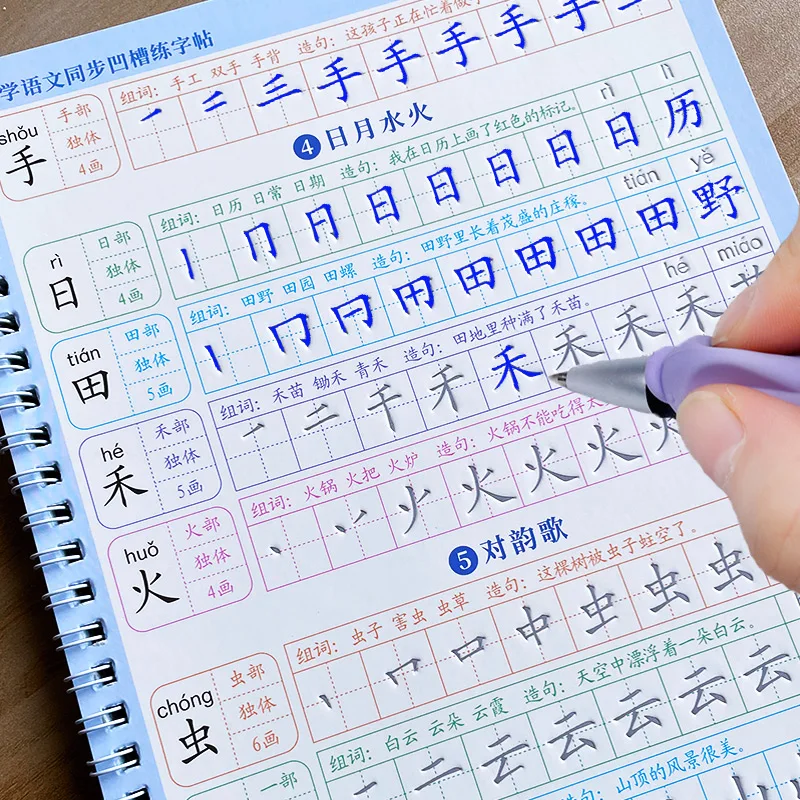 学语文同步凹槽练字帖
shǒu 手 手部 独体 4画
组词：手工 双手 手背 造句：这孩子正在忙着做手
一 二 三 手 手 手 手 手 手
4 日月水火
rì 日 日部 独体 4画
组词：日历 日常 日期 造句：我在日历上画了红色的标记。
rì lì
丨 冂 日 日 日 日 日 日 历
tián 田 田部 独体 5画
组词：田野 田园 田螺 造句：田野里长着茂盛的庄稼。
tián yě
丨 冂 日 田 田 田 田 田 野
hé 禾 禾部 独体 5画
组词：禾苗 锄禾 青禾 造句：田地里种满了禾苗。
hé miáo
一 二 千 禾 禾 禾 禾 禾 苗
huǒ 火 火部 独体 4画
组词：火锅 火把 火炉 造句：火锅不能吃得太
火 火 火 火
5 对韵歌
chóng 虫 虫部 独体 6画
组词：虫子 害虫 虫草 造句：这棵树被虫子蛀空了。
丶 口 口 中 虫 虫 虫
一部
组词：白云 云朵 云霞 造句：天空中漂浮着一朵白云。
一 二 云 云 云 云 云 云
造句：山顶的风景很美。